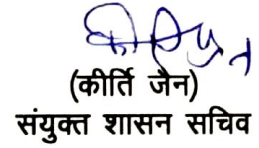 (कीर्ति जैन)
संयुक्त शासन सचिव